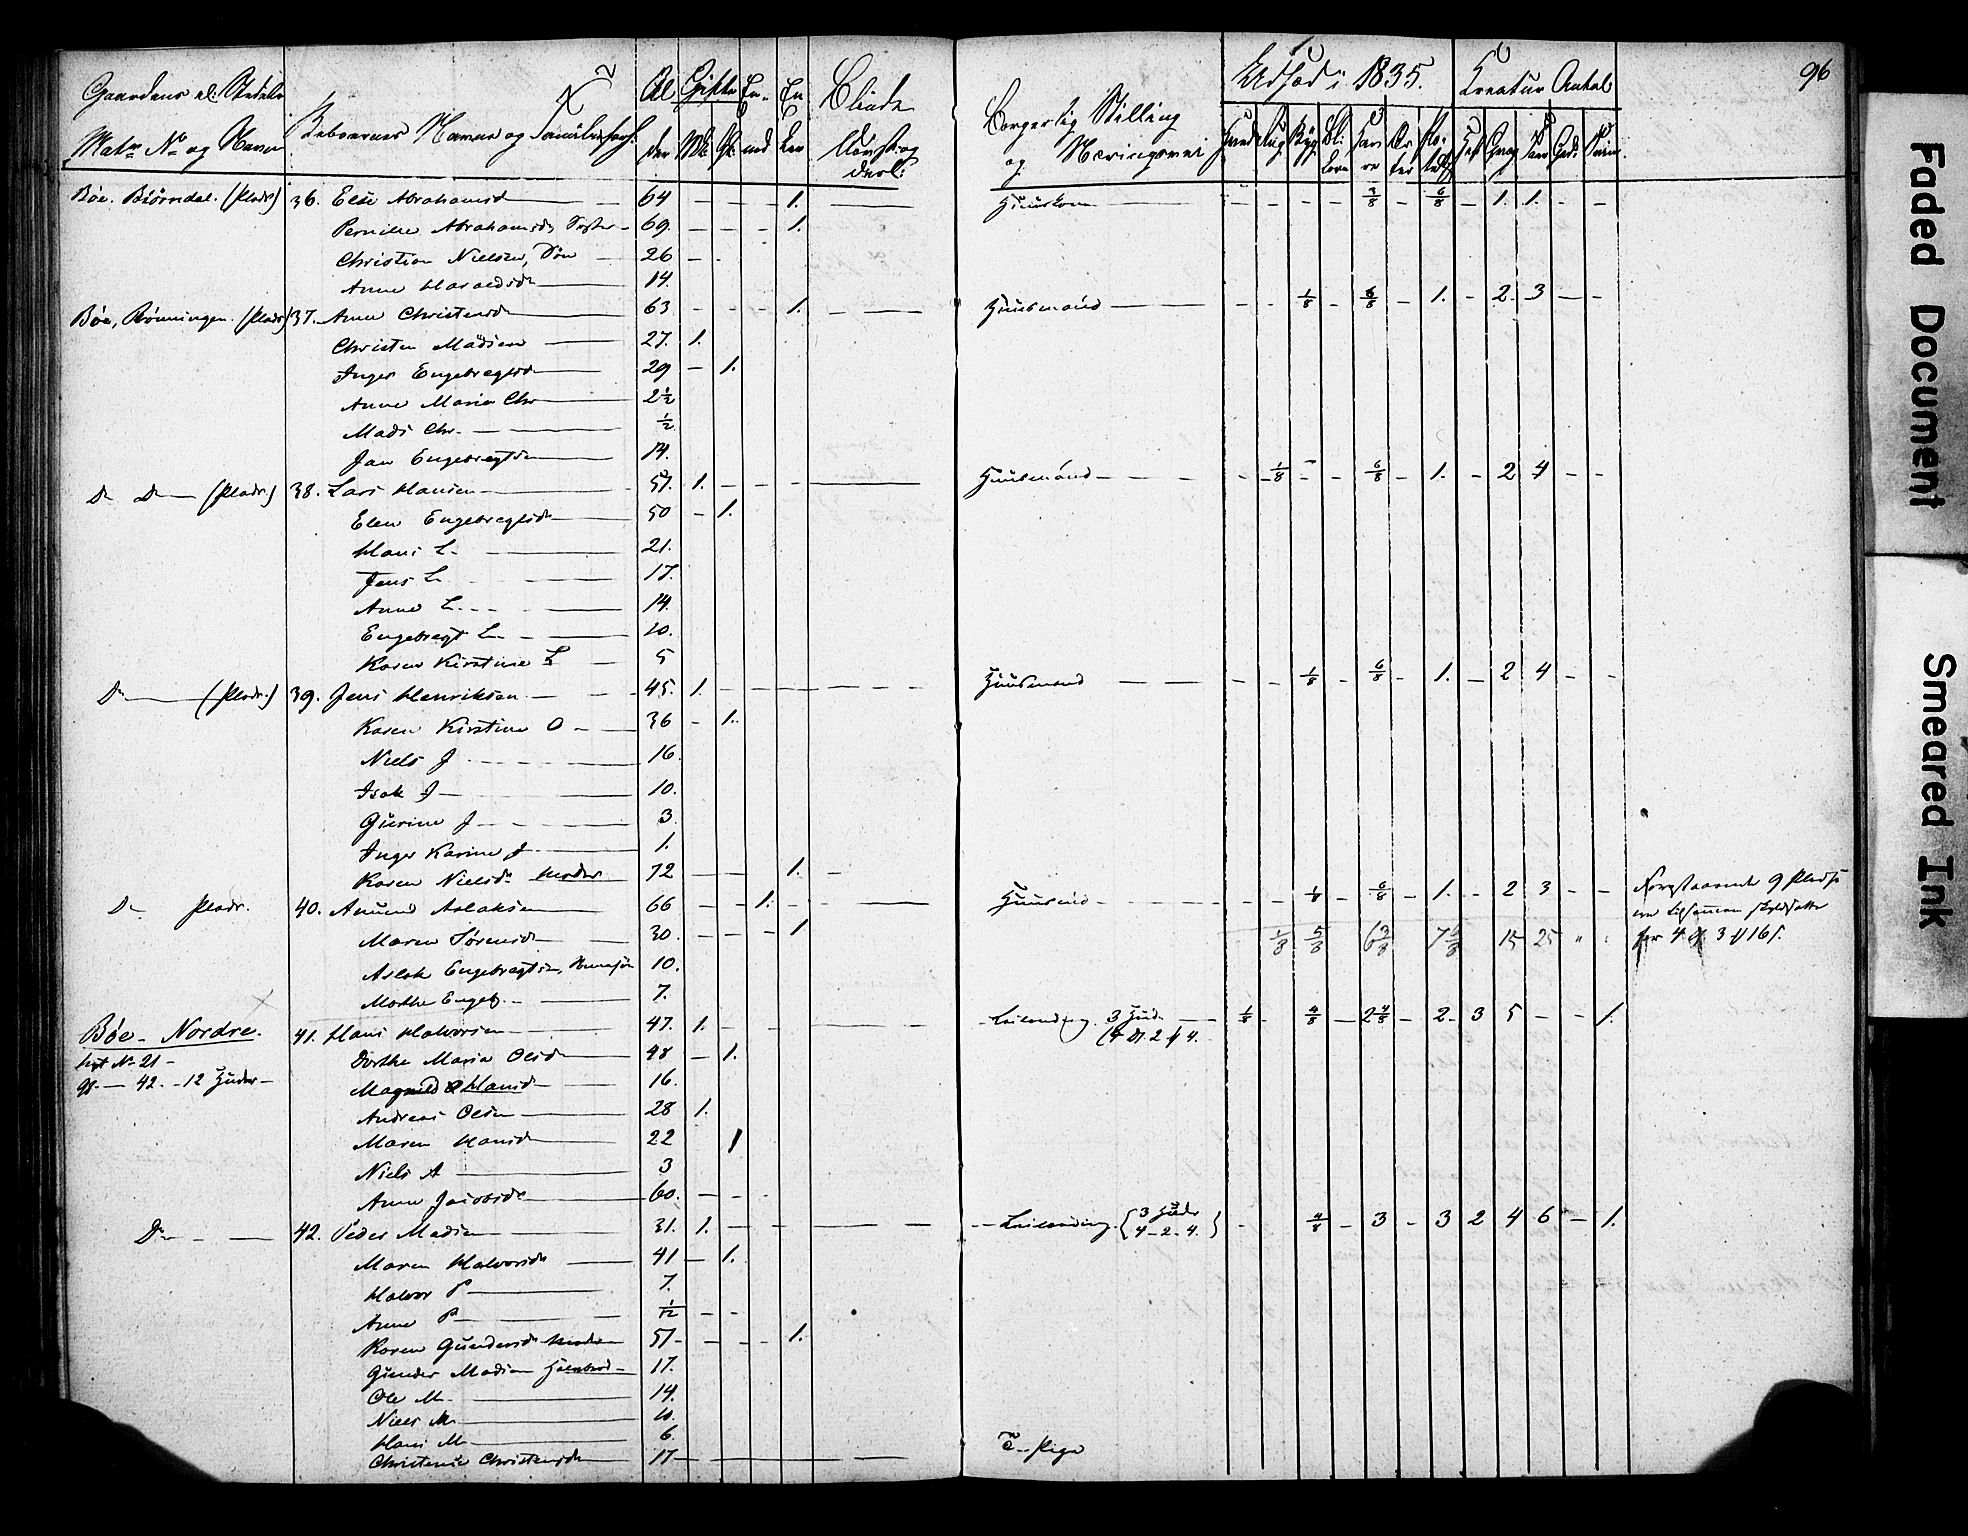 96
Gaardens el. Stedets Matr No og Navn
Beboernes Navne og Familieforh.
Al der
Gifte
Mk
Qk
Enk
Borgerlig Stilling og Næringsvei
Udsæd i 1835.
Kreatur Antal
Bøe. Biørndal. (Plads) 36. Else Abrahamsd 64 1. 3/8 6/8 1. 1.
Pernille Abrahamsd Søster 69. 1.
Christian Nielsen, Søn 26
Anne Haraldsd 14.
Bøe, Rønningen. (Plads) 37. Anne Christensd 63 1. Huusmand 1/8 6/8 1. 2. 3
Christen Madsen 27. 1.
Inger Engebregtsd 29 1.
Anne Maria Chr 2 1/2
Mads Chr. 1/2
Jan Engebregtsen 14.
Do Do (Plads.) 38. Lars Hansen 57. 1. Huusmand 1/8 6/8 1. 2 4
Elen Engebregtsd 50 1.
Hans L. 21.
Jens L. 17.
Anne L. 14.
Engebregt L. 10.
Karen Kirstine L 5
Do (Plads.) 39. Jens Henriksen 45. 1. Huusmand 1/8 6/8 1. 2 4
Karen Kirstine O 36 1.
Niels J 16
Isak J 10.
Gurine J 3
Inger Karine J 1.
Karen Nielsd Moder 72 1.
Do Plads. 40. Amund Aslaksen 66 1. 1/8 6/8 1. 2 3
Maren Sørensd 30. 1
1/8 5/8 15 25
Aslak Engebregtsen 10.
Marthe Engeb. 7.
Bøe Nordre. 41. Hans Halvorsen 47. 1. Leilænding. 3 Hud. 1/8 4/8 2 4/8 2 3 5 1.
Dorthe Maria Olsd 48 1.
42. 12 Huder
Hansd 16.
Andreas Olsen 28 1.
Maren Hansd 22 1
Niels A 3
Anne Jacobsd 60.
Do 42. Peder Madsen 31. 1. Leilænding. 3 Huder 4-2-4. 4/8 3 3 2 4 6 1.
Maren Halvorsd 41 1.
Halvor P 7.
Anne P 1/12
Karen Gundersd Moder 57 1.
Gunder Madsen 17.
Ole M. 14.
Niels M. 10.
Hans M 6.
Christense Christensd 17 T. Pige
Faded Document
Smeared Ink